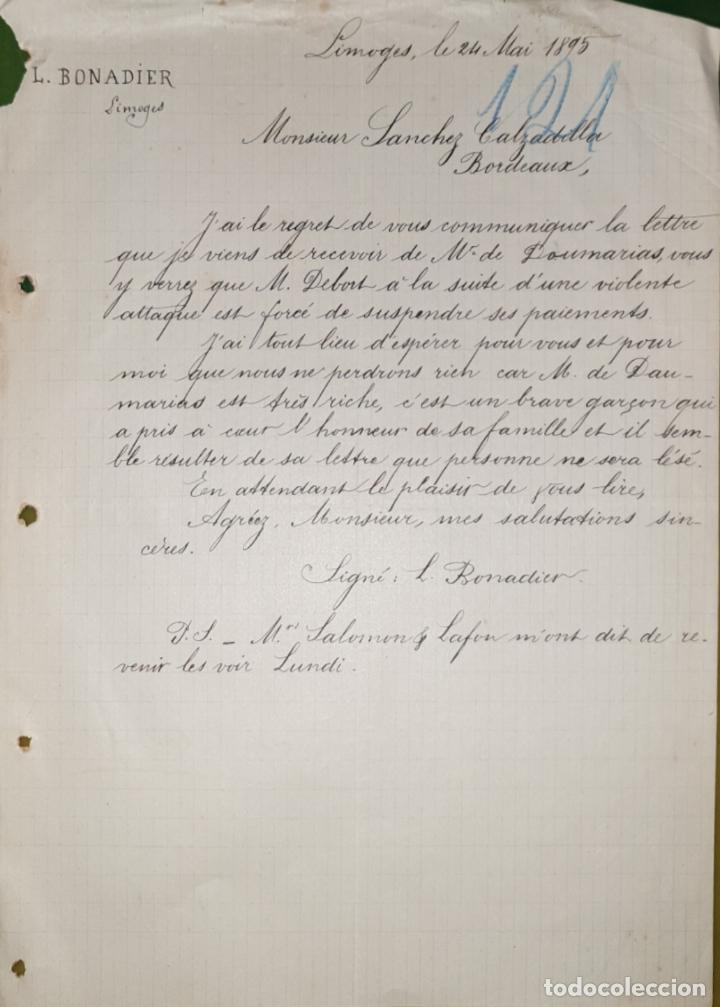 Limoges, le 24 Mai 1895
L. BONADIER
Limoges
121
Monsieur Sanchez Calzadilla
Bordeaux,
J'ai le regret de vous communiquer la lettre
que je viens de recevoir de Mr. de Doumarias, vous
y verrez que M. Debort à la suite d'une violente
attaque est forcé de suspendre ses paiements.
J'ai tout lieu d'espérer pour vous et pour
moi que nous ne perdrons rien car M. de Dau-
marias est très riche, c'est un brave garçon qui
a pris à cœur l'honneur de sa famille et il sem-
ble résulter de sa lettre que personne ne sera lésé.
En attendant le plaisir de vous lire,
Agréez, Monsieur, mes salutations sin-
cères.
Signé: L. Bonadier.
P.S. - Mrs Salomon & Lafon m'ont dit de re-
venir les voir Lundi.
todocoleccion